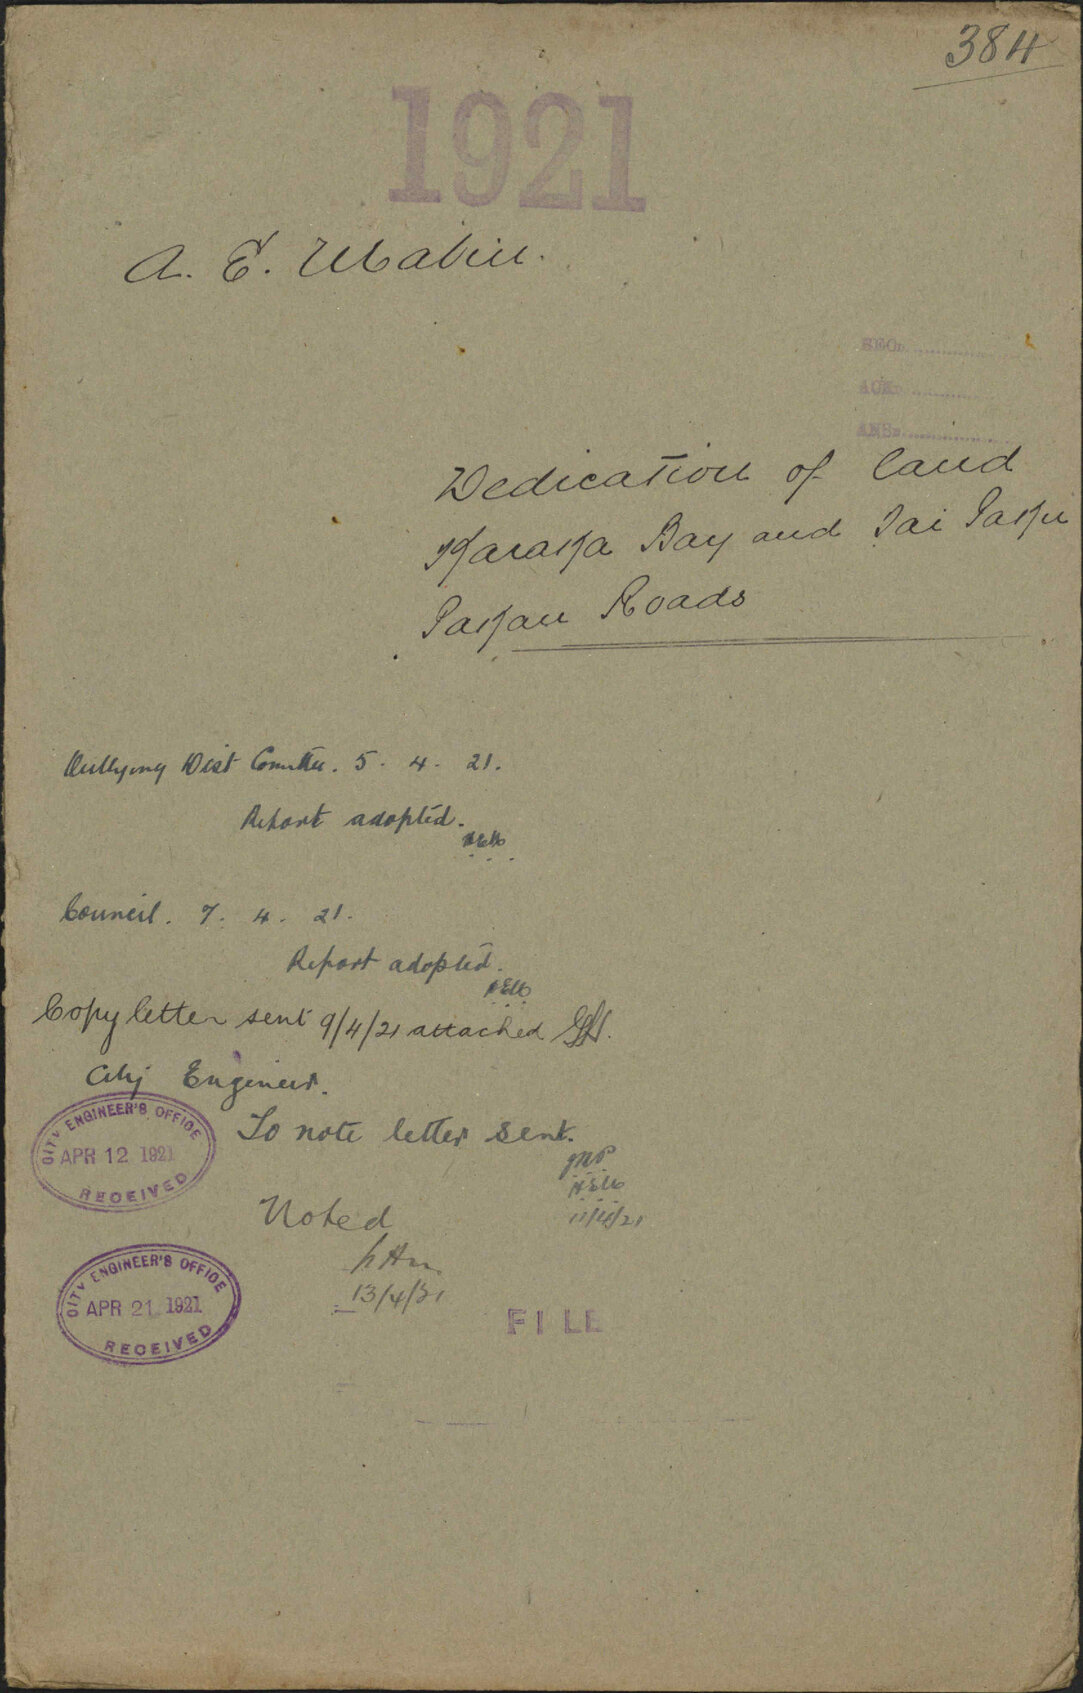 384
1921
A. E. Mabin.
REC:
ACK:
ANS:
Dedication of land
Karaka Bay and Tai Paku
Pakau Roads
Outlying Dist Comttee. 5. 4. 21.
Report adopted.
Council. 7. 4. 21.
Report adopted.
Copy letter sent 9/4/21 attached
City Engineer.
To note letter sent.
CITY ENGINEER'S OFFICE
APR 12 1921
RECEIVED
11/4/21
Noted
13/4/21
CITY ENGINEER'S OFFICE
APR 21 1921
RECEIVED
FILE